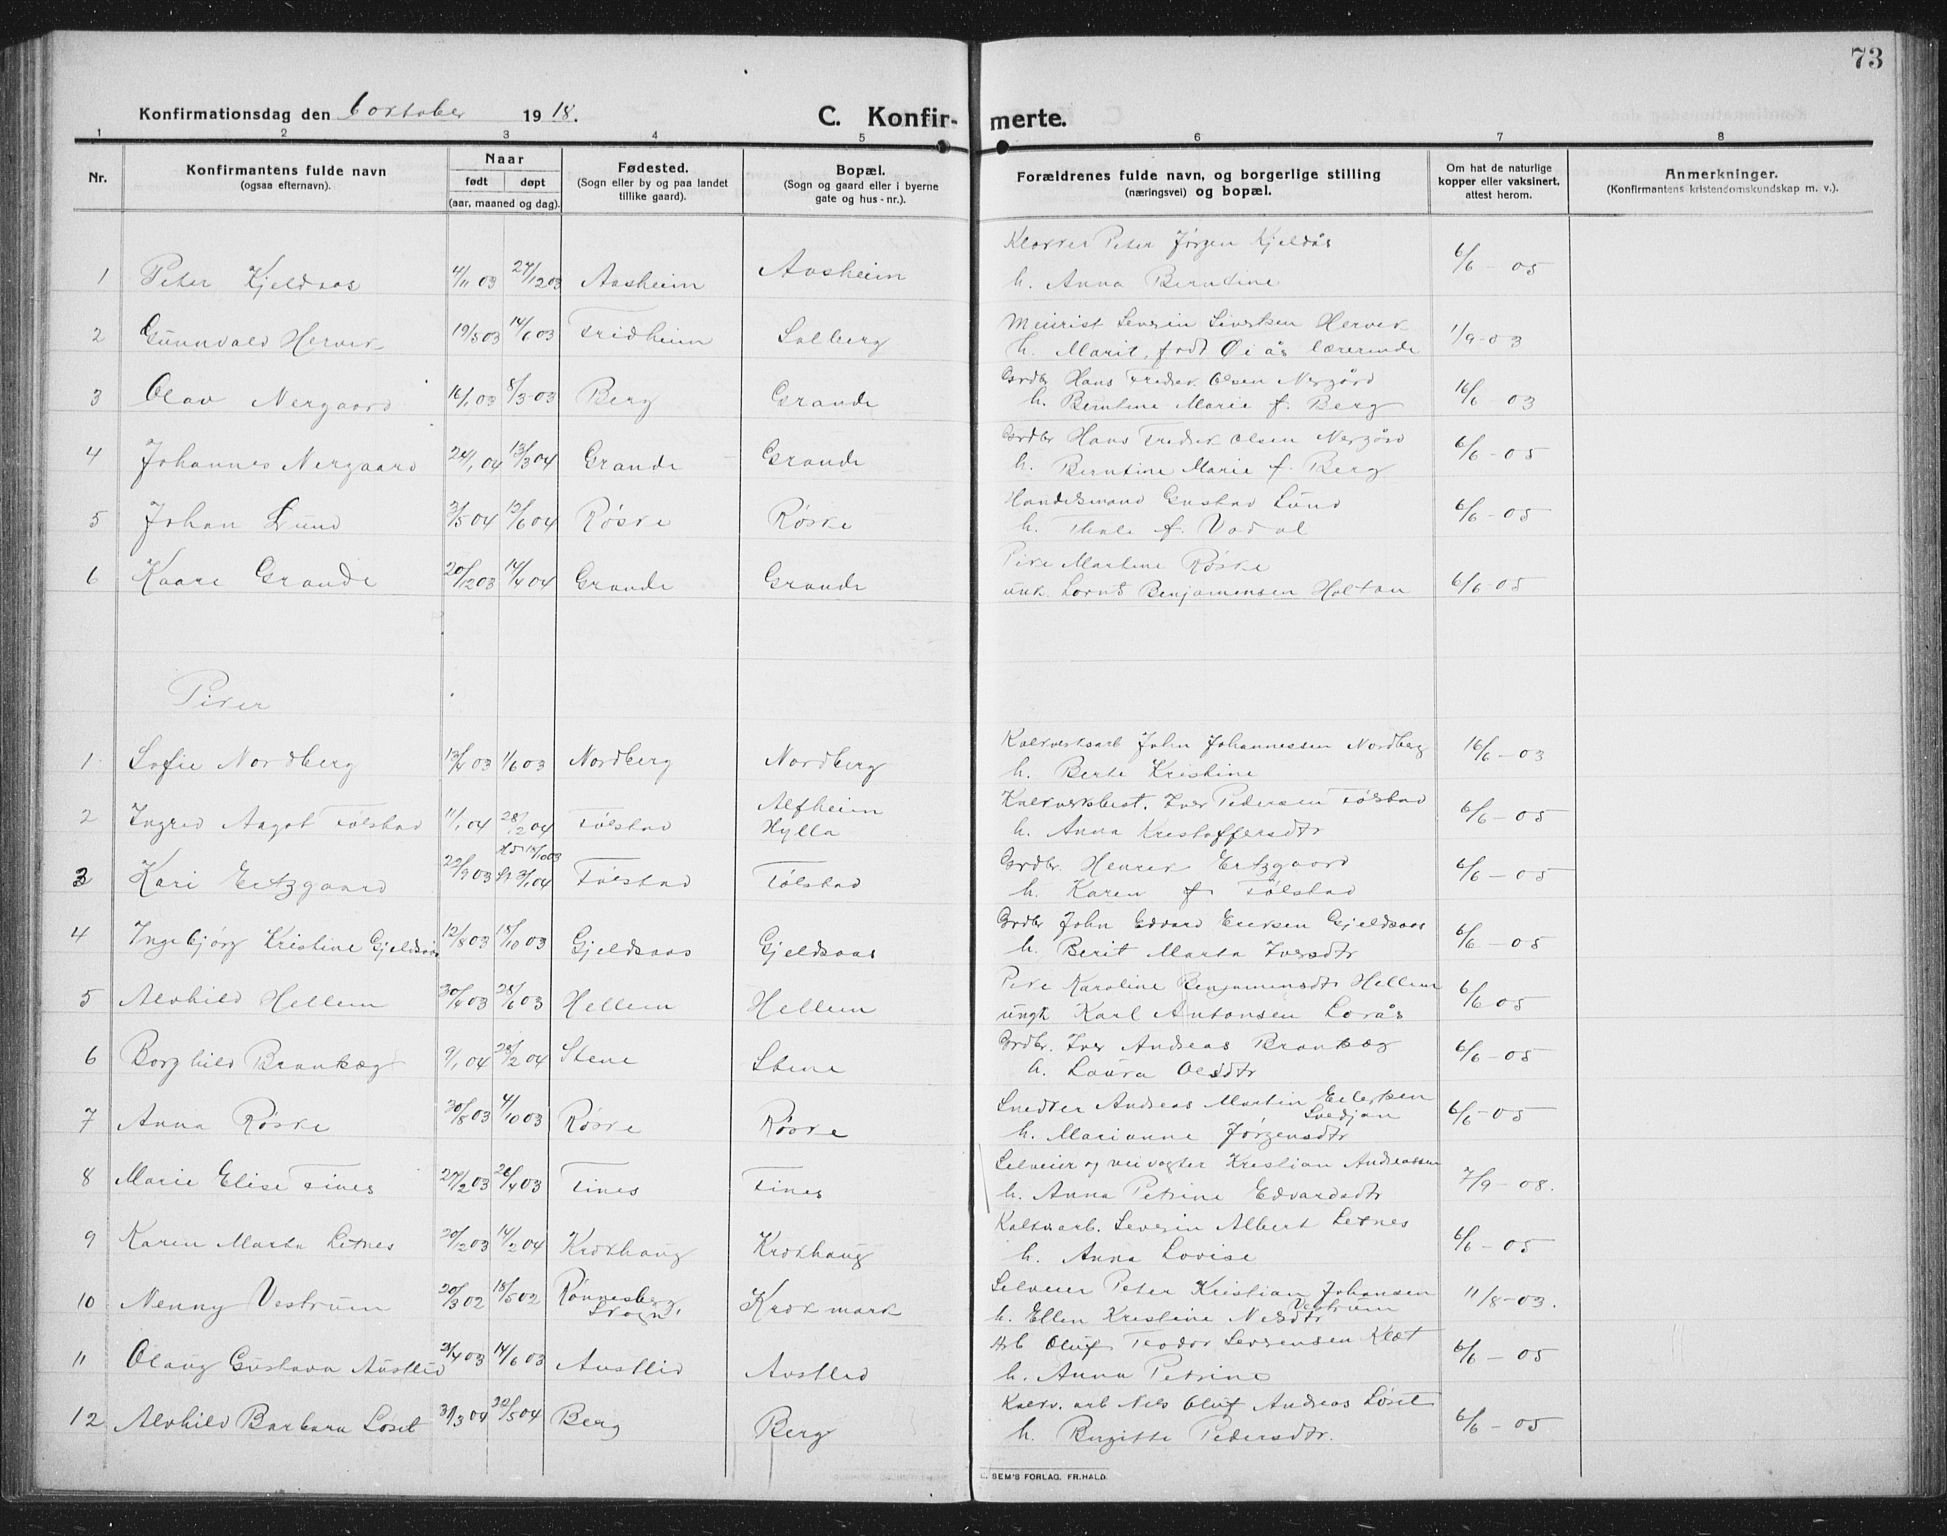 73
Konfirmationsdag den 6 october 1918.
C. Konfirmerte.
1 2 3 4 5 6 7 8
Nr.
Konfirmantens fulde navn
(ogsaa efternavn).
Naar
født døpt
(aar, maaned og dag).
Fødested.
(Sogn eller by og paa landet
tillike gaard).
Bopæl.
(Sogn og gaard eller i byerne
gate og hus-nr.).
Forældrenes fulde navn, og borgerlige stilling
(næringsvei) og bopæl.
Om hat de naturlige
kopper eller vaksinert,
attest herom.
Anmerkninger.
(Konfirmantens kristendomskundskap m. v.).
Klokker Peter Jørgen Kjeldås
1 Peter Kjeldaas 4/11 03 27/12 03 Aasheim Aasheim h. Anna Berntine 6/6 - 05
Meierist Severin Sivertsen Hervik
2 Gunnvald Hervik 19/5 03 14/6 03 Fridheim Solberg h. Marit, født Øiås lærerinde 1/9-03
Grdbr Hans Fredrik Olsen Nergård
3 Olav Nergaard 16/1 03 8/3-03 Berg Grande h. Berntine Marie f. Berg 16/6 - 03
Grdbr Hans Fredrik Olsen Nergård
4 Johannes Nergaard 24/1 04 13/3 04 Grande Grande h. Berntine Marie f. Berg 6/6 - 05
Handelsmand Gustav Lund
5 Johan Lund 3/5 04 12/6 04 Røske Røske h. Thale f. Vådal 6/6 - 05
Pike Martine Røske
6 Kaare Grande 20/12 03 14/4 04 Grande Grande unk. Lornts Benjaminsen Holtan 6/6-05
Piker
Kalkverksarb John Johannessen Nordberg
1 Sofie Nordberg 13/4 03 1/6 03 Nordberg Nordberg h. Berte Kristine 16/6 - 03
Kalkverksbest. Iver Pedersen Følstad
2 Ingrid Aagot Følstad 11/1 04 28/2 04 Følstad Alfheim
Hylla h. Anna Kristoffersdtr 6/6 - 05
Hd 18/10 03 Grdbr. Henrik Ertzgaard
3 Kari Ertzgaard 22/9 03 St 3/1 04 Følstad Følstad h. Karen f Følstad 6/6 - 05
Grdbr John Edvard Eriksen Gjeldsaas
4 Ingebjørg Kristine Gjeldsaas 12/8 03 18/10 03 Gjeldsaas Gjeldsaas h. Berit Marta Iversdtr 6/6 - 05
Pike Karoline Benjaminsdtr Hellem
5 Alvhild Hellem 30/4 03 28/6 03 Hellem Hellem ungk Karl Antonsen Lorås 6/6 05
Grdbr. Iver Andreas Brandtzæg
6 Borghild Brandtzæg 9/1 04 28/2 04 Stene Stene h. Laura Olsdtr 6/6 - 05
Snedker Andreas Martin Eilertsen
Svedjan
7 Anna Røske 20/8 03 4/10 03 Røske Røske h. Marianne Jørgensdtr 6/6 - 05
Selveier og veivogter Kristian Andreassen
8 Marie Elise Fines 27/2 03 26/4 03 Fines Fines h. Anna Petrine Edvardsdtr 7/9 - 08.
Kalkv.arb. Severin Albert Letnes
9 Karen Marta Letnes 20/12 03 14/2 04 Krokhaug Krokhaug h. Anna Lovise 6/6 - 05
Selveier Peter Kristian Johansen
Vestrum
10 Nenny Vestrum 20/3 02 18/5 02 Rønnesberg,
Sogn Krokmark h. Ellen Kristine Nilsdtr 11/8-03.
Arb Oluf Teodor Sevrensen Klæt
11 Olaug Gustava Austlid 21/4 03 14/6 03 Austlid Austlid h. Anna Petrine 6/6 - 05
Kalkv. arb Nils Oluf Andreas Løset
12 Alvhild Barbara Løset 31/3 04 22/5 04 Berg Berg h. Birgitte Pedersdtr. 6/6 - 05
SEM'S FORLAG, FR.HALD